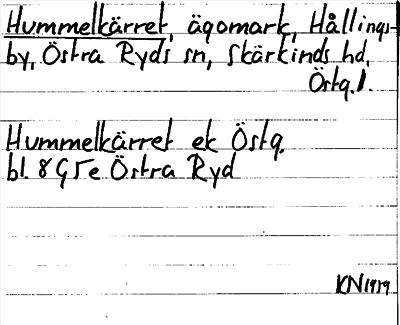 Hummelkärret, ägomark, Hållings-
by, Östra Ryds sn, Skärkinds hd,
Östg. l.
Hummelkärret ek Östg.
bl. 8 G 5 e Östra Ryd
KN 1979